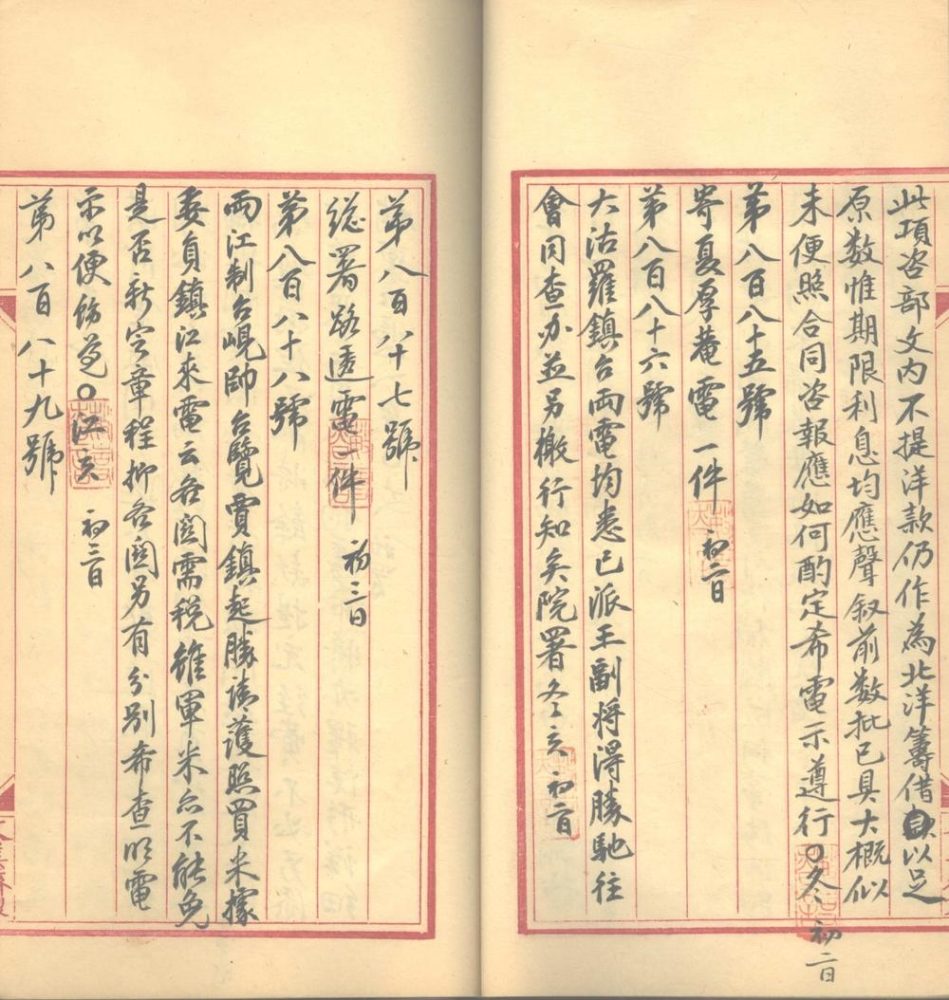 此項咨部文内不提洋款仍作為北洋籌借以足
原数惟期限利息均應聲叙前数批已具大概似
未便照合同咨報應如何酌定希電示遵行○冬 初二日
第八百八十五號
寄夏厚菴電一件 初二日
第八百八十六號
大沽羅鎮台両電均悉已派王副将得勝馳往
會同查办並另檄行知矣院署冬亥 初二日
第八百八十七號
総署路透電一件 初三日
第八百八十八號
両江制台峴帥台覽賈鎮起勝請護照買米據
委員鎮江來電云各関需税雖軍米亦不能免
是否新定章程抑各関另有分别希查明電
示以便飭遵○江亥 初三日
第八百八十九號